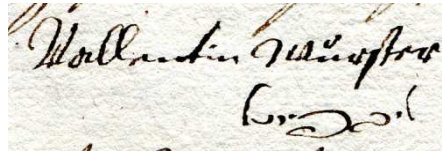 Vallentin Wurster